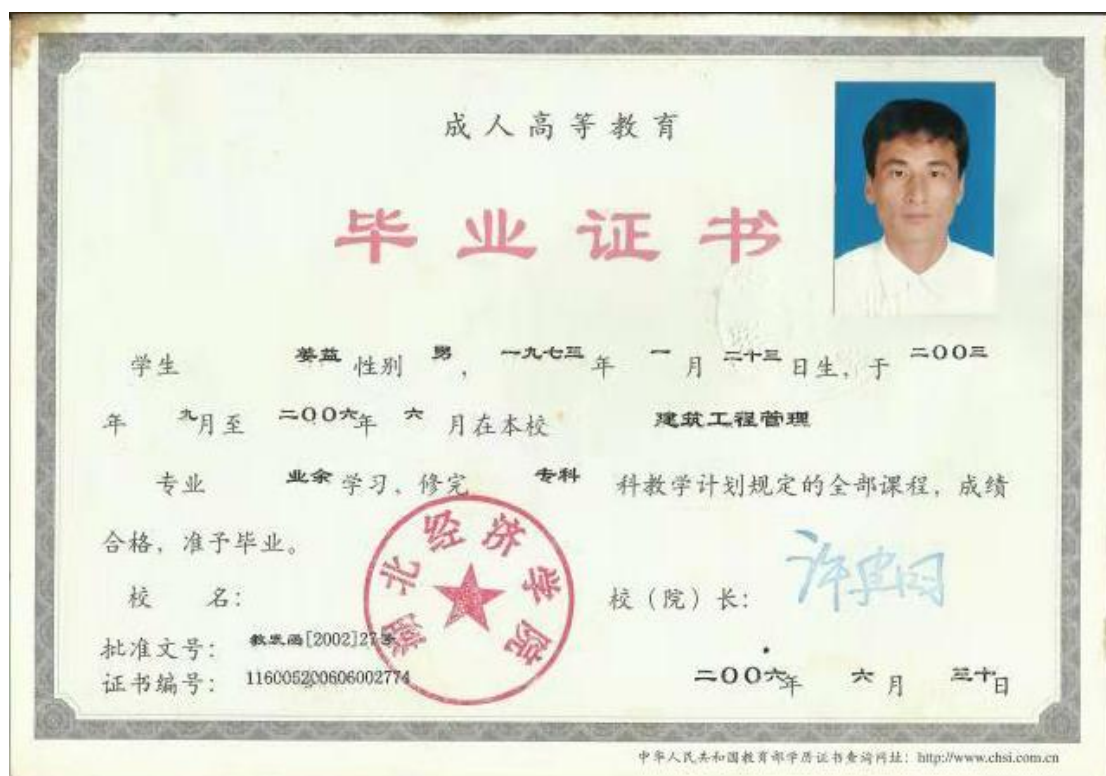 成人高等教育
毕业证书
学生 姜益 性别 男，一九七三年 一月 二十三日生，于 二00三
年 九月至 二00六年 六 月在本校 建筑工程管理
专业 业余 学习，修完 专科 科教学计划规定的全部课程，成绩
合格，准予毕业。
校 名： 校（院）长：
湖北经济学院
批准文号： 教发函[2002]27号
证书编号： 116005200606002774
二00六年 六月 三十日
中华人民共和国教育部学历证书查询网址：http://www.chsi.com.cn